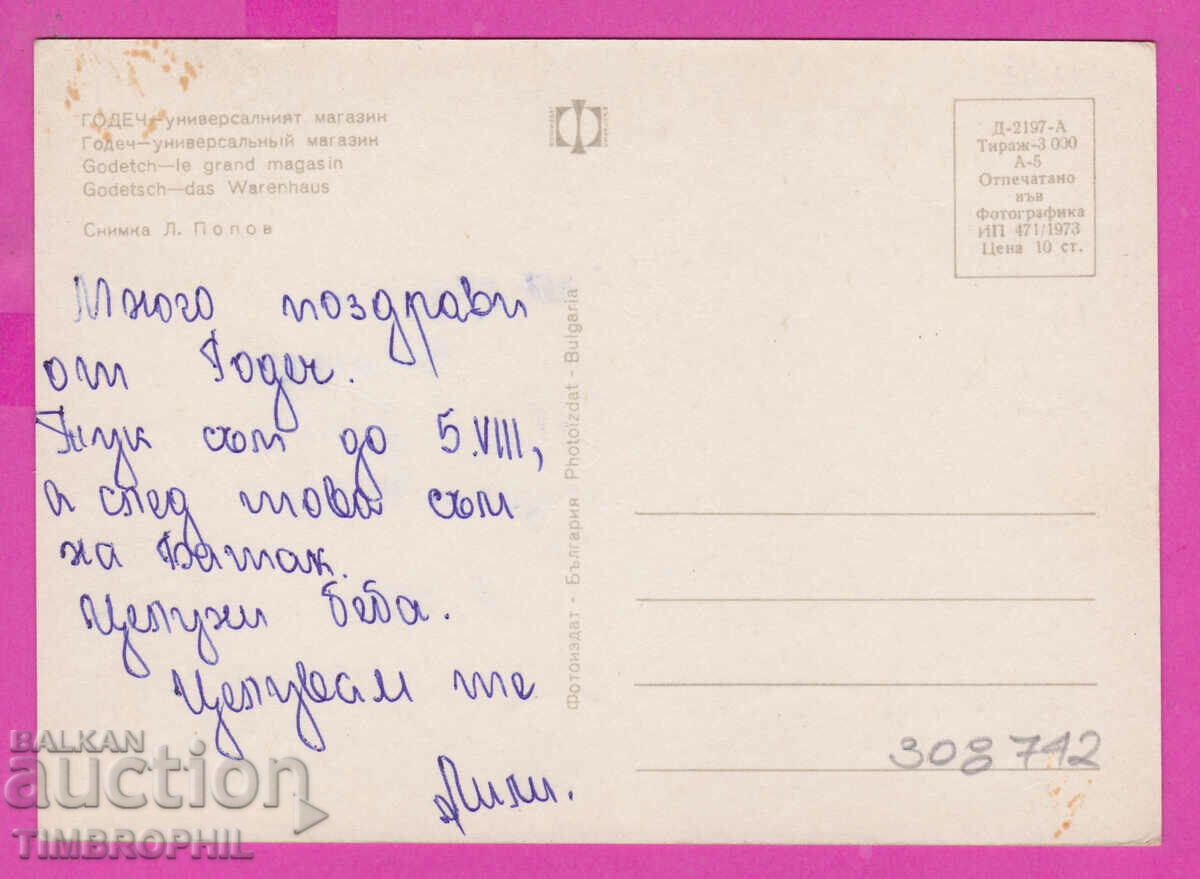 ГОДЕЧ—универсалният магазин
Годеч—универсальный магазин
Godetch—le grand magasin
Godetsch—das Warenhaus
Снимка Л. Попов
Д-2197-А
Тираж-3 000
А-5
Отпечатано
във
Фотографика
ИП 471/1973
Цена 10 ст.
Много поздрави
от Годеч.
Тук съм до 5.VIII,
а след това съм
на Батак.
Целуни беба.
Целувам те
Лили.
Фотоиздат - България Photoizdat - Bulgaria
308742
BALKAN
auction
TIMBROPHIL